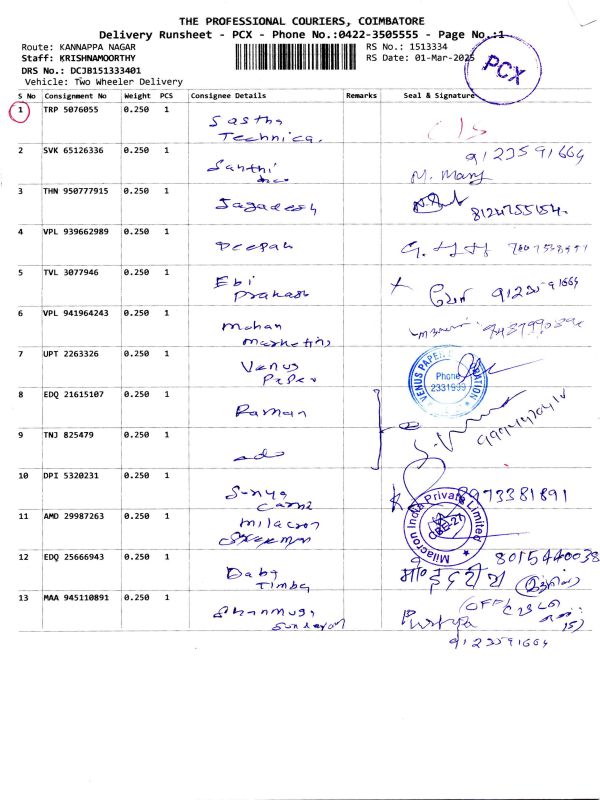 THE PROFESSIONAL COURIERS, COIMBATORE
Delivery Runsheet - PCX - Phone No.:0422-3505555 - Page No.:1
Route: KANNAPPA NAGAR RS No.: 1513334
Staff: KRISHNAMOORTHY RS Date: 01-Mar-2025
PCX
DRS No.: DCJB151333401
Vehicle: Two Wheeler Delivery
S No Consignment No Weight PCS Consignee Details Remarks Seal & Signature
1 TRP 5076055 0.250 1 Sastha
Technica.
2 SVK 65126336 0.250 1 Santhi 9123591664
M. Mary
3 THN 950777915 0.250 1 Jagadesh 8124755154
4 VPL 939662989 0.250 1 Deepak
5 TVL 3077946 0.250 1 Ebi
Prakash 9123591664
6 VPL 941964243 0.250 1 Mohan
Marketing
7 UPT 2263326 0.250 1 Venus
Paper
VENUS PAPER
Phone
2331999
8 EDQ 21615107 0.250 1 Raman
9 TNJ 825479 0.250 1 ado
10 DPI 5320231 0.250 1 8973381891
11 AMD 29987263 0.250 1 Milacron
Milacron India Private Limited
CBE-27
12 EDQ 25666943 0.250 1 Daba 8015440038
Timba
13 MAA 945110891 0.250 1 Shanmuga
Sundaram
9123591664